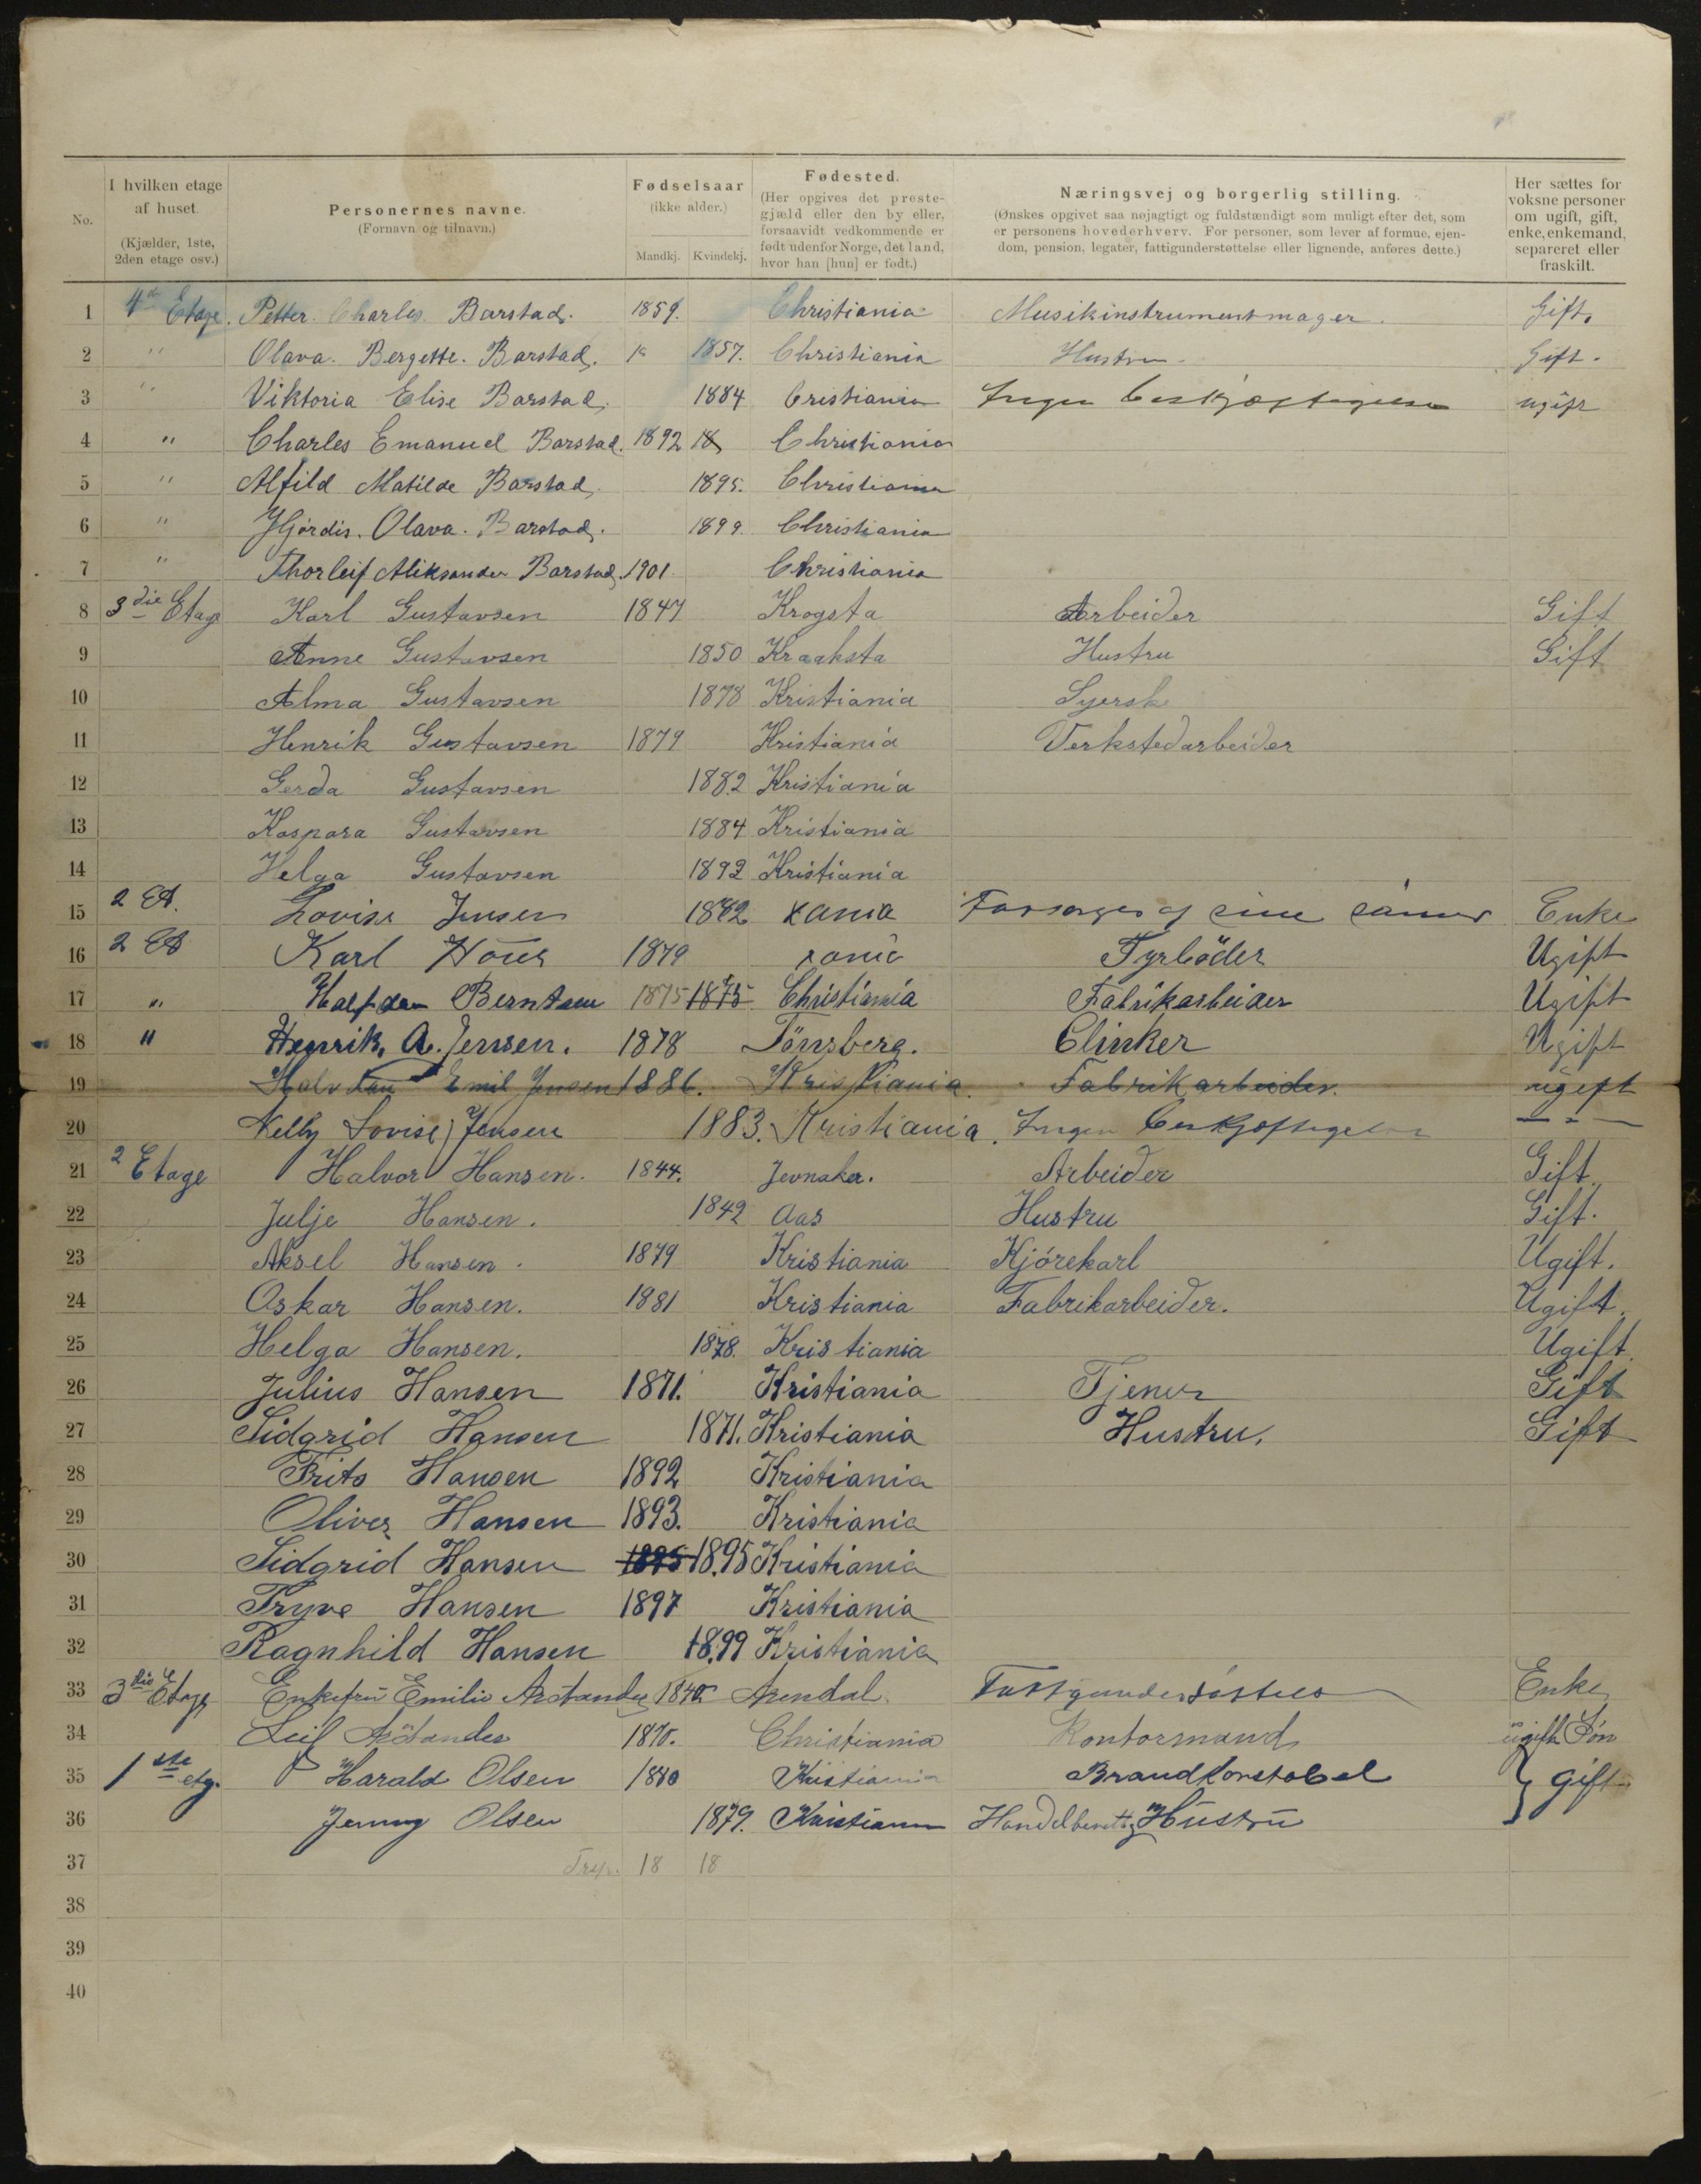 No.
I hvilken etage af huset.
(Kjælder, 1ste, 2den etage osv.)
Personernes navne.
(Fornavn og tilnavn.)
Fødselsaar
(ikke alder.)
Mandkj. Kvindekj.
Fødested.
(Her opgives det prestegjæld eller den by eller, forsaavidt vedkommende er født udenfor Norge, det land, hvor han [hun] er født.)
Næringsvej og borgerlig stilling.
(Ønskes opgivet saa nøjagtigt og fuldstændigt som muligt efter det, som er personens hovederhverv. For personer, som lever af formue, ejendom, pension, legater, fattigunderstøttelse eller lignende, anføres dette.)
Her sættes for voksne personer om ugift, gift, enke, enkemand, separeret eller fraskilt.
1 4d Etage. Petter Charles Barstad. 1859. Christiania Musikinstrumentmager. Gift.
2 " Olava. Bergette. Barstad. 1857. Christiania Hustru. Gift.
3 " Viktoria Elise Barstad. 1884 Cristiania Ingen Beskjæftigelse ugift
4 " Charles Emanuel Barstad. 1892 18 Christiania
5 " Alfild Matilde Barstad. 1895. Christiania
6 " Hjørdis. Olava. Barstad. 1899. Christiania
7 " Thorleif Aliksander Barstad. 1901 Christiania
8 3die Etage Karl Gustavsen 1847 Krogsta Arbeider Gift
9 Anne Gustavsen 1850 Kraaksta Hustru Gift
10 Alma Gustavsen 1878 Kristiania Syersk
11 Henrik Gustavsen 1879 Kristiania Verkstedarbeider
12 Gerda Gustavsen 1882 Kristiania
13 Kaspara Gustavsen 1884 Kristiania
14 Helga Gustavsen 1892 Kristiania
15 2 Et. Lovise Jensen 1842 Xania Forsørges af sine sønner Enke
16 2 Et Karl 1879 xania Fyrbøder Ugift
17 " Halfdan Berntsen 1875 1875 Christiania Fabrikarbeider Ugift
18 " Henrik. A. Jensen. 1878 Tönsberg. Clinker Ugift
19 Halvdan Emil Jensen 1886. Kristiania. Fabrikarbeider. ugift
20 Nelly Lovise Jensen 1883. Kristiania. Ingen Beskjæftigelse — " —
21 2 Etage Halvor Hansen. 1844. Jevnaker. Arbeider Gift.
22 Julje Hansen. 1842 Aas Hustru Gift.
23 Aksel Hansen. 1879 Kristiania Kjørekarl Ugift.
24 Oskar Hansen. 1881 Kristiania Fabrikarbeider. Ugift.
25 Helga Hansen. 1878. Kristiania Ugift.
26 Julius Hansen 1871. Kristiania Tjener Gift
27 Sidgrid Hansen 1871. Kristiania Hustru. Gift
28 Frits Hansen 1892 Kristiania
29 Oliver Hansen 1893. Kristiania
30 Sidgrid Hansen 1895 1895 Kristiania
31 Tryve Hansen 1897 Kristiania
32 Ragnhild Hansen 1899 Kristiania
33 3die Etage Enkefru Emilie 1840. Arendal. Enke
34 Leif 1870. Christiania Kontormand ugift Søn
35 1ste etg. Harald Olsen 1880 Kristiania Brandkonstabel } gift
36 Jenny Olsen 1879. Kristiania Handelberettig Hustru
37 18 18
38
39
40